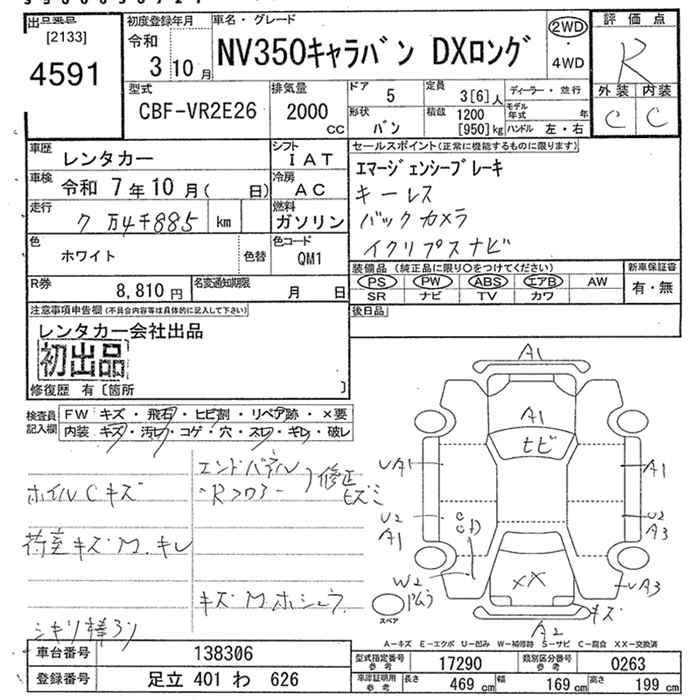 出品番号 初度登録年月 車名・グレード 評価点
[2133] 令和 NV350キャラバン DXロング 2WD・4WD R
4591 3 10月 外装 内装
型式 排気量 ドア 定員 ディーラー・並行 C C
CBF-VR2E26 2000 CC 5 3[6]人 モデル年式 年
形状 積載 ハンドル 左・右
バン 1200 [950]kg
車歴 レンタカー シフト IAT セールスポイント(正常に機能するものに限ります)
車検 令和 7年10月( 日) 冷房 AC エマージェンシーブレーキ
走行 7万4千885 km 燃料 ガソリン キーレス
バックカメラ
色 ホワイト 色替 色コード QM1 イクリプスナビ
R券 8,810円 名変通知期限 月 日 装備品(純正品に限り○をつけてください) 新車保証書
PS PW ABS エアB AW 有・無
SR ナビ TV カワ
注意事項申告欄(不具合内容等は具体的に記入して下さい) 後日品
レンタカー会社出品
初出品
修復歴 有〔箇所 〕
検査員記入欄 FW キズ・飛石・ヒビ割・リペア跡・×要
内装 キズ・汚レ・コゲ・穴・スレ・キレ・破レ
エンドパネル 修正
ホイルCキズ ヒズミ
荷室キズ M.キレ
A1
A1
ヒビ
UA1 A1
U2 A1 U2 A3
W2 UA3
XX
キズ
A2
スペア
A-キズ E-エクボ U-凹み W-補修跡 S-サビ C-腐食 XX-交換済
車台番号 138306 型式指定番号 参考 17290 類別区分番号 参考 0263
登録番号 足立 401 わ 626 車庫証明用 参考 長さ 469cm 幅 169cm 高さ 199cm